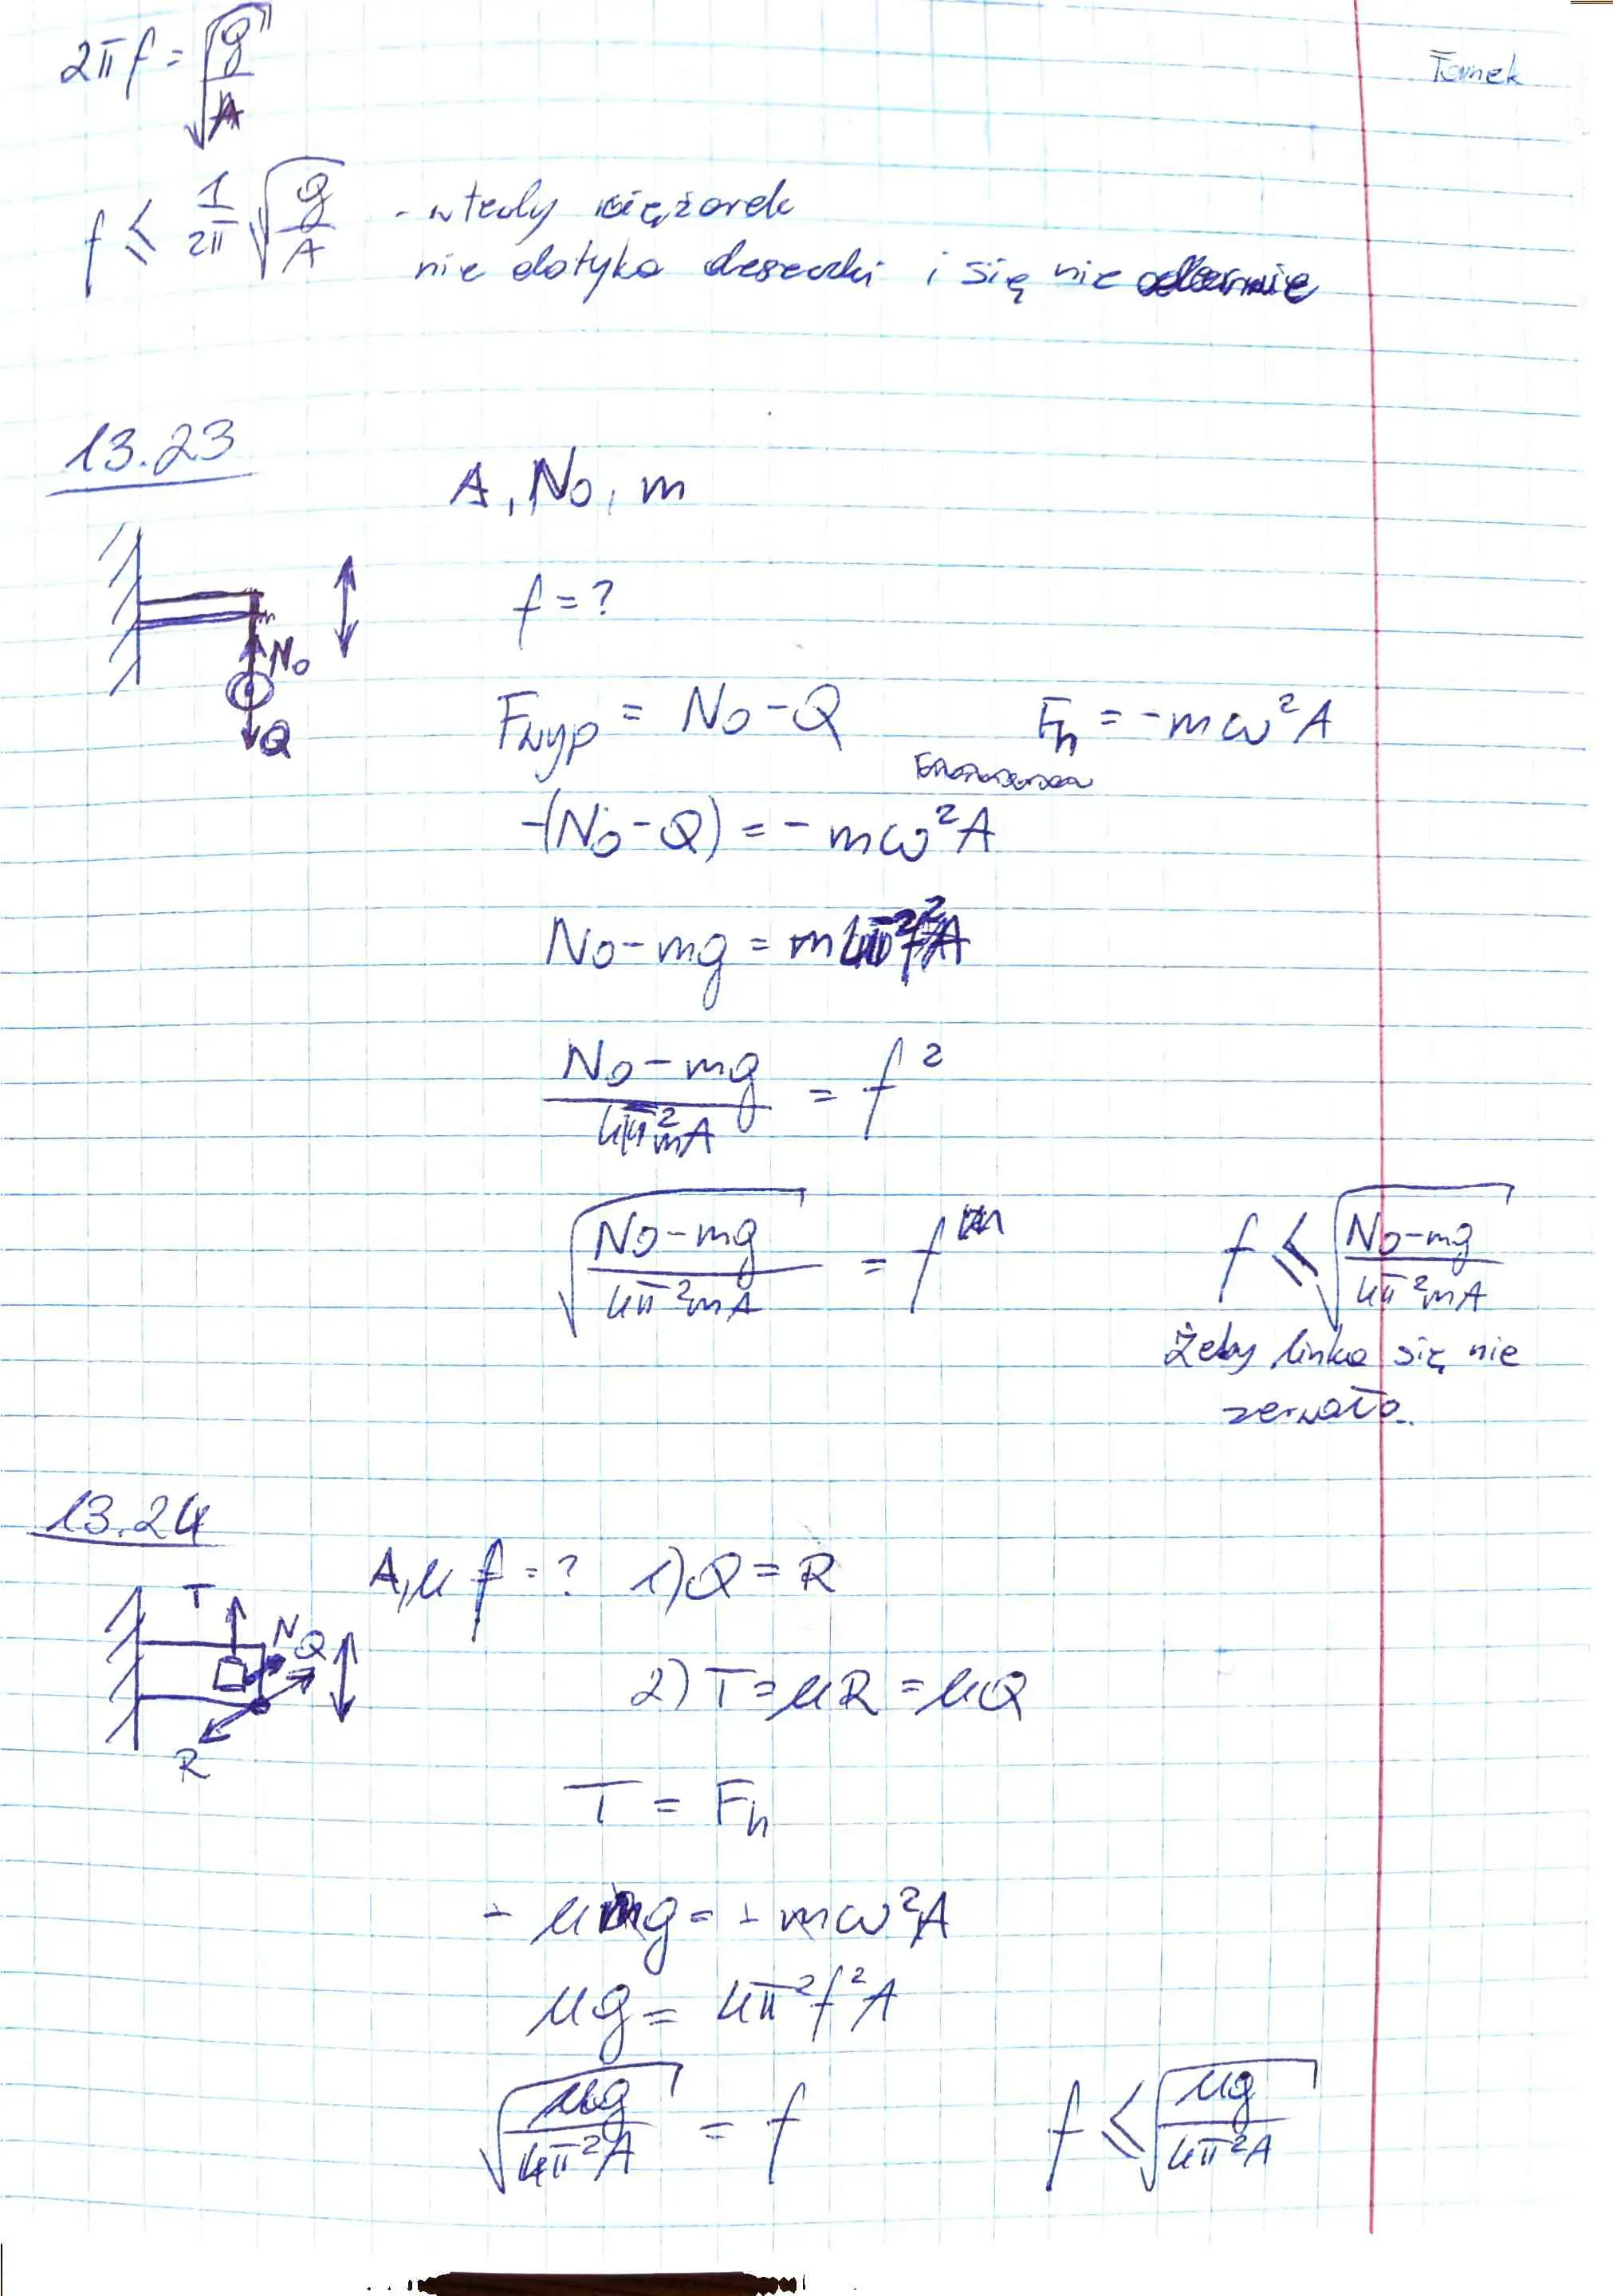 Tomek
2πf = √(g/A)
f ≤ 1/2π √(g/A) - wtedy ciężarek
nie dotyka deseczki i się nie oderwie
13.23
A, N₀, m
f = ?
N₀
Q
Fwyp = N₀ - Q Fₕ = -mω²A
-(N₀ - Q) = - mω²A
N₀ - mg = m4π²f²A
(N₀ - mg)/(4π²mA) = f²
√((N₀ - mg)/(4π²mA)) = f f ≤ √((N₀ - mg)/(4π²mA))
żeby linka się nie
zerwała.
13.24
A, μ f = ? 1) Q = R
T
N
Q
R
2) T = μR = μQ
T = Fₕ
- μmg = - mω²A
μg = 4π²f²A
√(μg/(4π²A)) = f f ≤ √(μg/(4π²A))